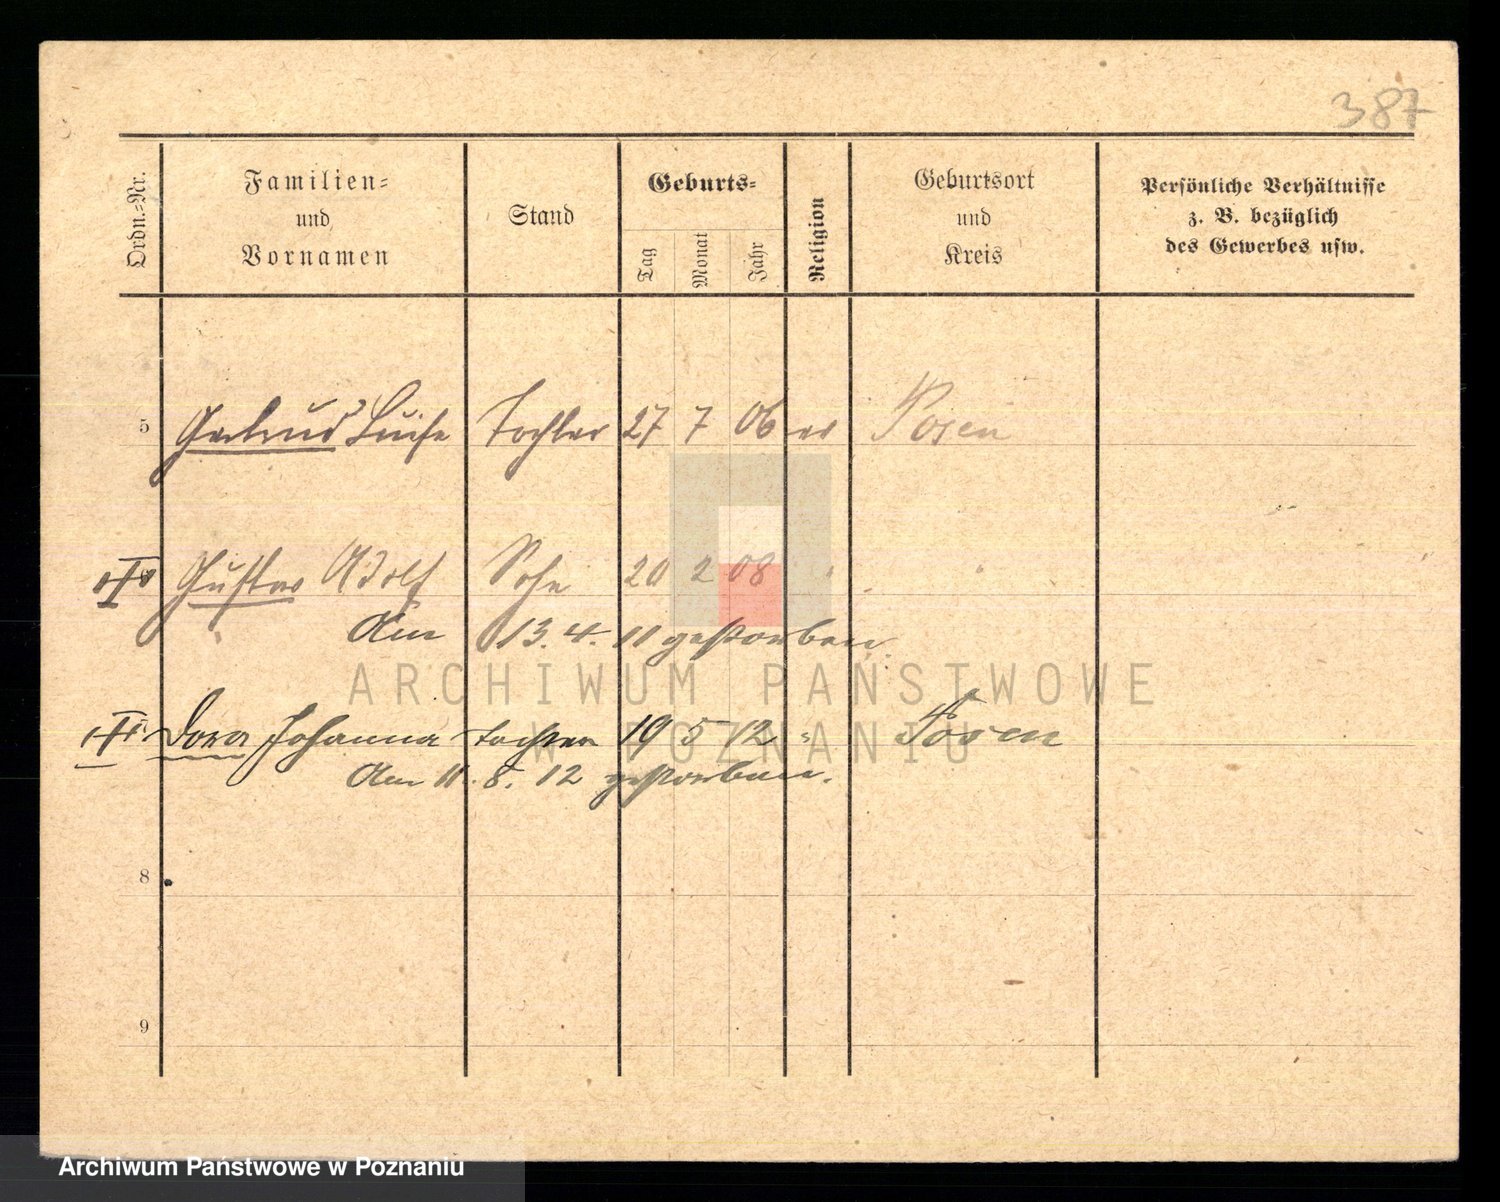 387
Ordn.-Nr.
Familien-
und
Vornamen
Stand
Geburts-
Tag
Monat
Jahr
Religion
Geburtsort
und
Kreis
Persönliche Verhältnisse
z. B. bezüglich
des Gewerbes usw.
5 Gertrud Luise Tochter 27 7 06 ev Posen
Gustav Adolf Sohn 20 2 08 " "
Am 13. 4. 11 gestorben.
Dora Johanna Tochter 19 5 12 " Posen
Am 11. 8. 12 gestorben.
8
9
ARCHIWUM PAŃSTWOWE
W POZNANIU
Archiwum Państwowe w Poznaniu